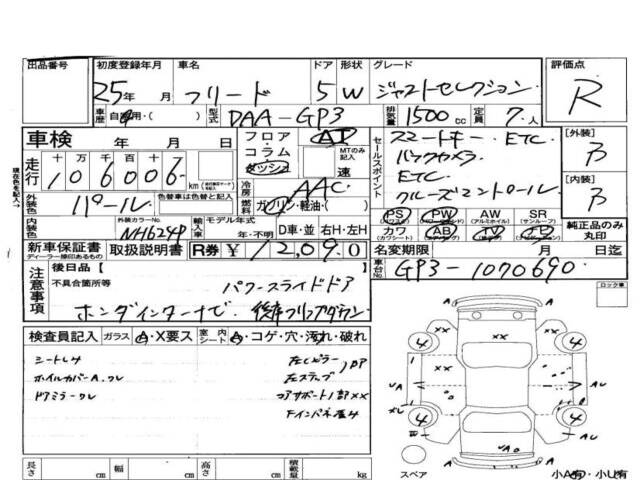 出品番号
初度登録年月 車名 ドア 形状 グレード 評価点
25年 月 フリード 5 W ジャストセレクション R
車歴 自家用・( ) 型式 DAA-GP3 排気量 1500 cc 定員 7人
車検 年 月 日
フロア・コラム・ダッシュ AT
MTのみ記入 速
セールスポイント
スマートキー ETC
バックカメラ
ETC
クルーズコントロール
[外装] B
[内装] B
走行 十 万 千 百 十 一
km
冷房 AAC
燃料 ガソリン・軽油・( )
外装色 パール 色替車は色替と記入
内装色 外装カラーNo. NH624P
輸入車 モデル年式 年・不明 D車・並 右H・左H
PS (パワステ) PW (パワーウィンド) AW (アルミホイル) SR (サンルーフ)
カワ AB TV
純正品のみ丸印
新車保証書 取扱説明書 R券 ¥12,090
ディーラー捺印あるもの
名変期限 月 日迄
車台No. GP3-1070690
注意事項
後日品 [ ]
不具合箇所等
パワースライドドア
ホンダインターナビ 後席フリップダウン
ロック車
検査員記入 ガラス A・X要ス 室内シート A・コゲ・穴・汚れ・破れ
シートヨゴレ
ホイルカバーA.ワレ
ドアミラーワレ
左Cピラー
左ステップ
コアサポート1部XX
長さ cm 幅 cm 高さ cm 積載量 kg
スペア
小A有・小U有